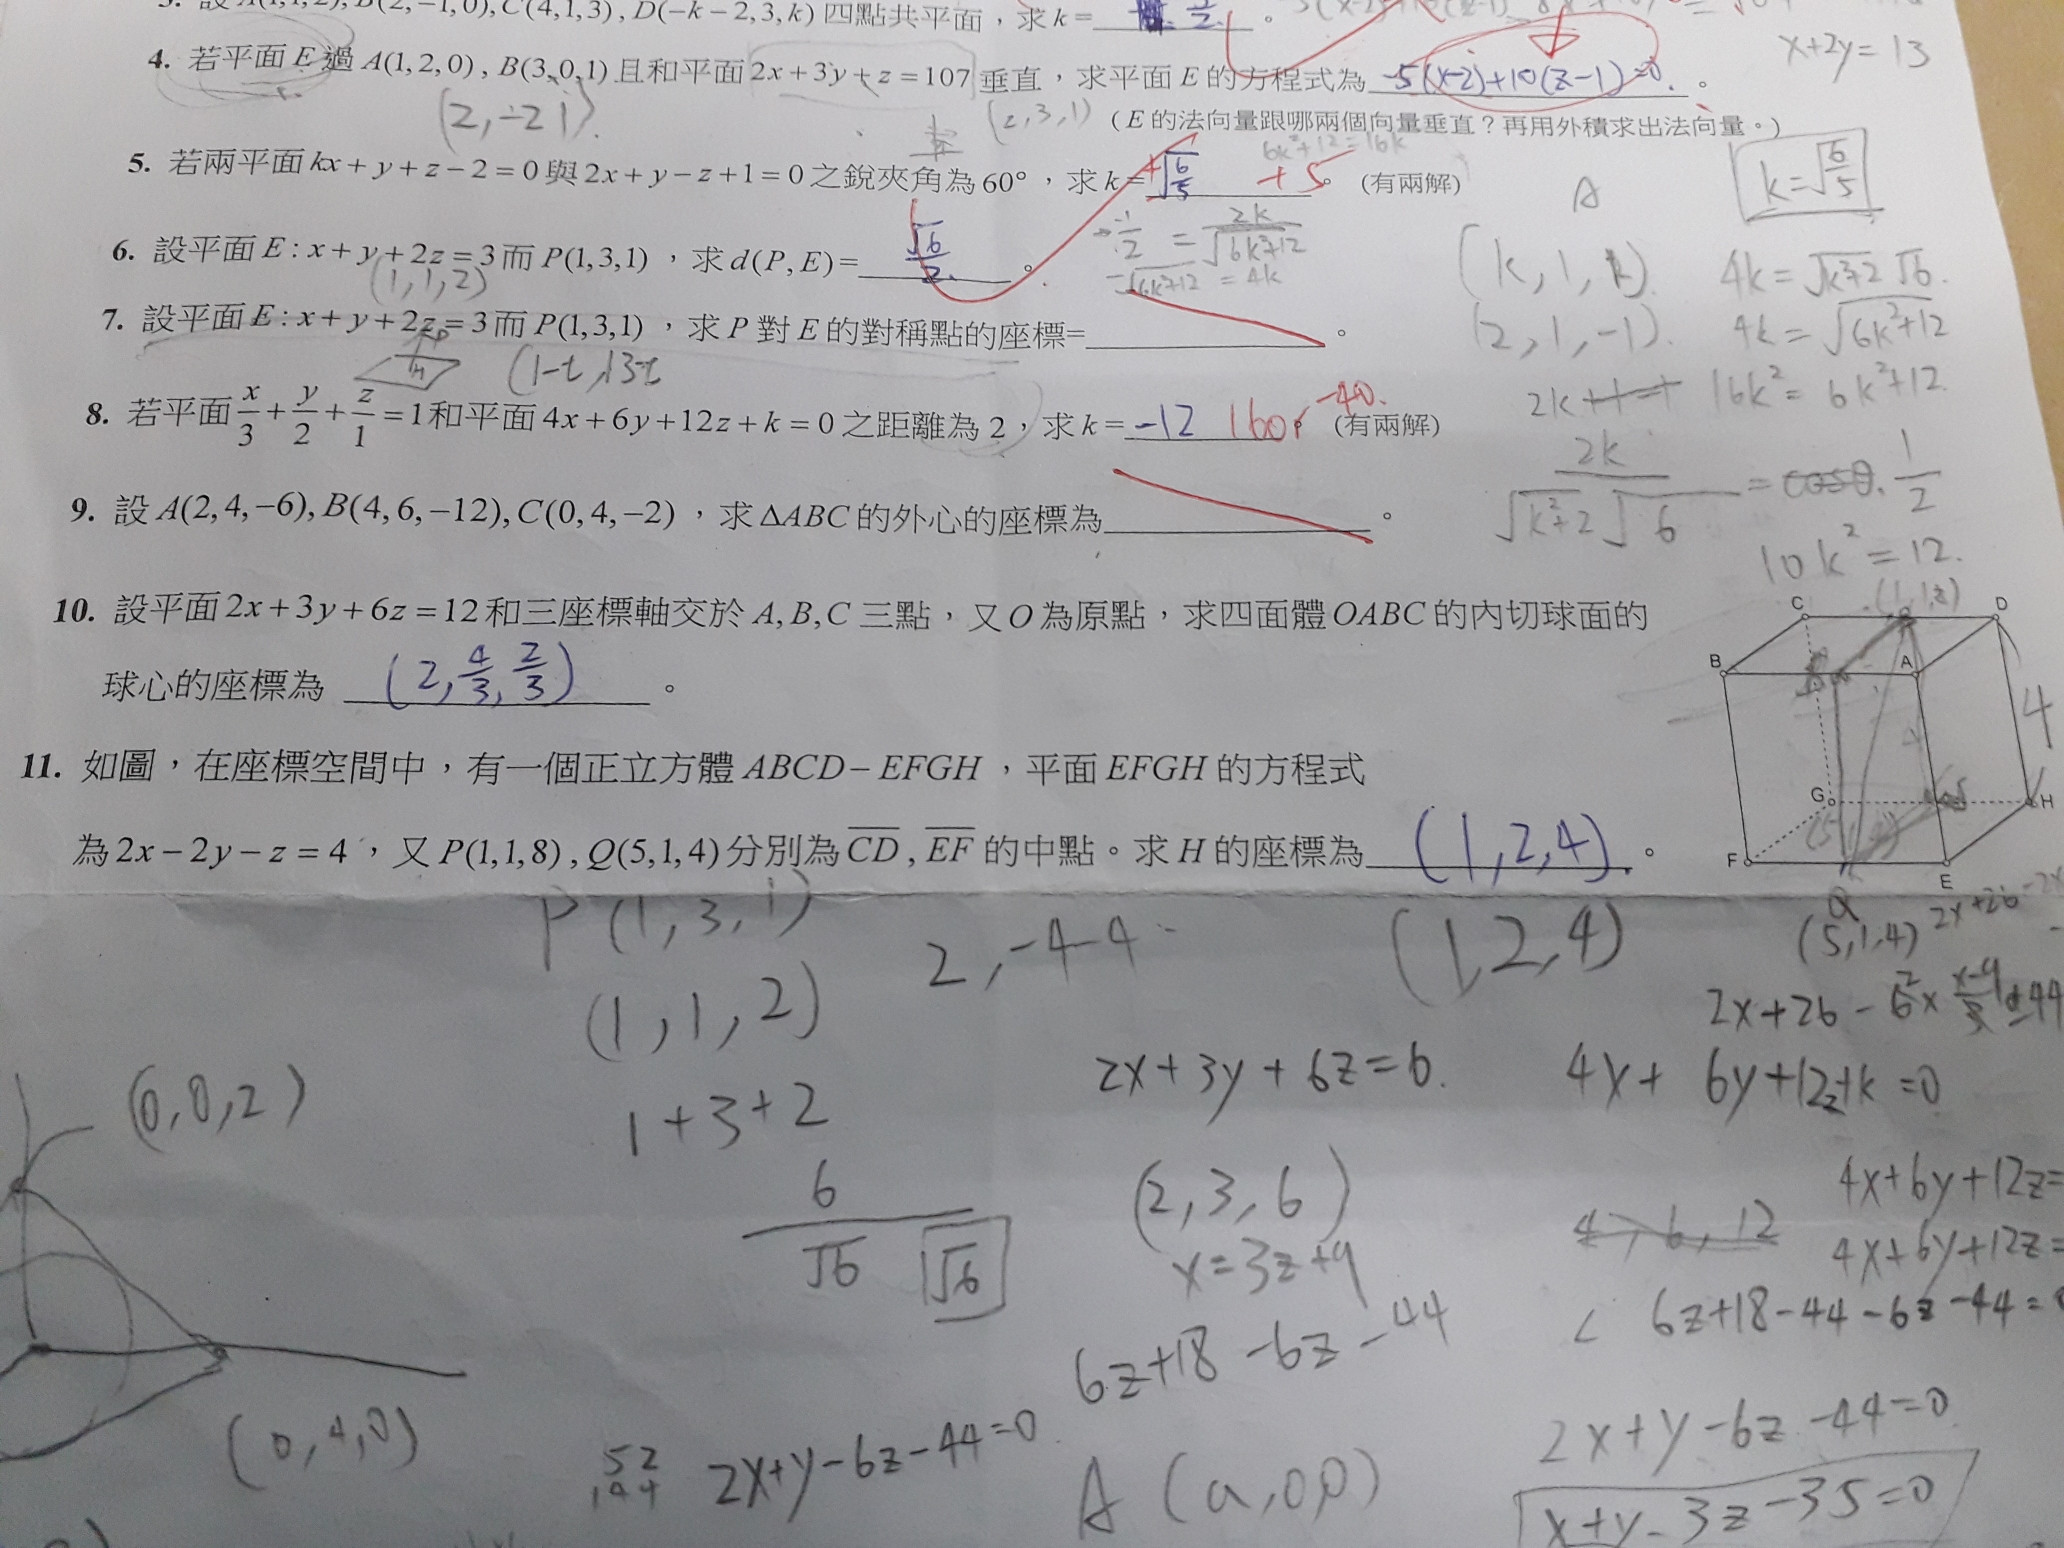 3. 設 A(1,1,2), B(2,−1,0), C(4,1,3), D(−k−2,3,k) 四點共平面，求 k =
x+2y=13
4. 若平面 E 過 A(1,2,0), B(3,0,1) 且和平面 2x+3y+z=107 垂直，求平面 E 的方程式為 -5(x-2)+10(z-1)=0 。
(2,-2 1) (2,3,1) (E 的法向量跟哪兩個向量垂直？再用外積求出法向量。)
6k²+12=16k
5. 若兩平面 kx+y+z−2=0 與 2x+y−z+1=0 之銳夾角為 60°，求 k= ±√6/5 +5 。 (有兩解)
k=√6/5
A
6. 設平面 E : x+y+2z=3 而 P(1,3,1) ，求 d(P,E)= √6/2 。
(1,1,2)
1/2 = 2k/√6k²+12
√6k²+12 = 4k
(k,1,1) 4k=√k²+2 √6.
7. 設平面 E : x+y+2z=3 而 P(1,3,1) ，求 P 對 E 的對稱點的座標= 。
(2,1,-1). 4k=√6k²+12
(1-t,13-t
2k+1-1 16k²=6k²+12.
8. 若平面 x/3+y/2+z/1=1 和平面 4x+6y+12z+k=0 之距離為 2，求 k= -12 16or -40. (有兩解)
2k/√k²+2 √6 = cosθ. 1/2
9. 設 A(2,4,−6), B(4,6,−12), C(0,4,−2) ，求 ΔABC 的外心的座標為 。
10k²=12.
10. 設平面 2x+3y+6z=12 和三座標軸交於 A,B,C 三點，又 O 為原點，求四面體 OABC 的內切球面的
球心的座標為 (2,4/3,2/3) 。
C D
B A
4
G H
F E
11. 如圖，在座標空間中，有一個正立方體 ABCD−EFGH ，平面 EFGH 的方程式
為 2x−2y−z=4 ，又 P(1,1,8), Q(5,1,4) 分別為 CD, EF 的中點。求 H 的座標為 (1,2,4). 。
Q
(5,1,4)
P(1,3,1) 2,-4-4 (1,2,4)
(1,1,2)
1+3+2
6/√6 √6
(0,0,2)
(0,4,0)
2x+3y+6z=6. 4x+6y+12z+k=0
(2,3,6) 4,6,12 4x+6y+12z=
x=3z+9 4x+6y+12z=
6z+18-6z-44 6z+18-44-6z-44=0
2x+y-6z-44=0 2x+y-6z-44=0
A(a,0,0) x+y-3z-35=0